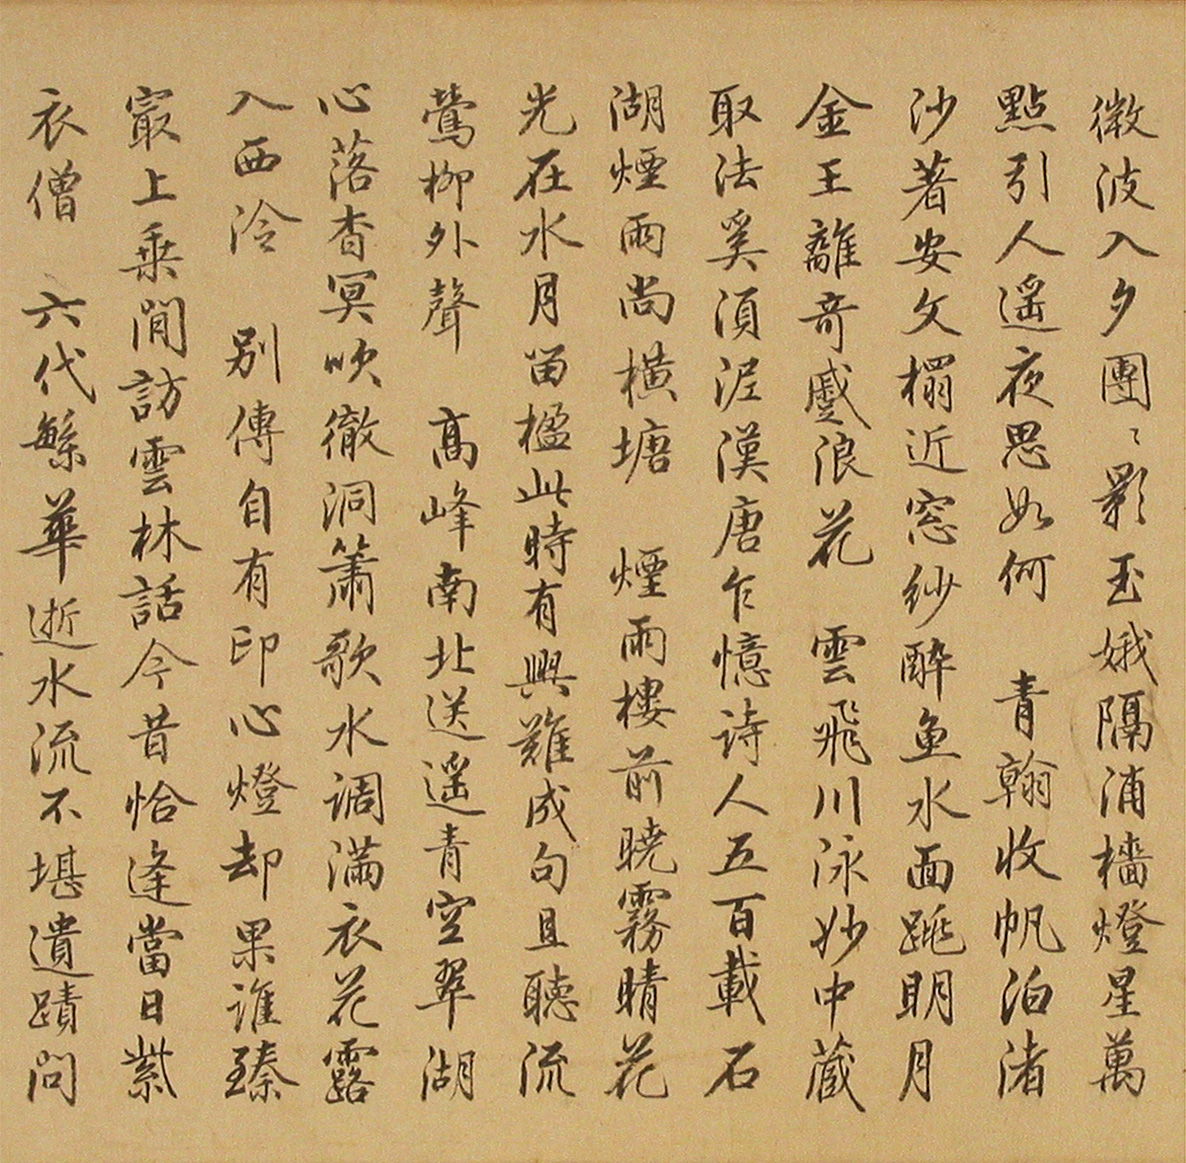 微波入夕團〻影玉娥隔浦檣燈星萬
點引人遥夜思如何　青翰收帆泊渚
沙著安文榻近窓紗醉魚水面跳明月
金王離奇蹙浪花　雲飛川泳妙中蔵
取法奚須泥漢唐乍憶詩人五百載石
湖煙雨尚橫塘　煙雨樓前曉霧晴花
光在水月留楹此時有興難成句且聽流
鶯柳外聲　高峰南北送遥青空翠湖
心落杳冥吹徹洞簫歌水調滿衣花露
入西泠　別傳自有印心燈却果誰臻
㝡上乗閒訪雲林話今昔恰逢當日紫
衣僧　六代繁華逝水流不堪遺蹟問